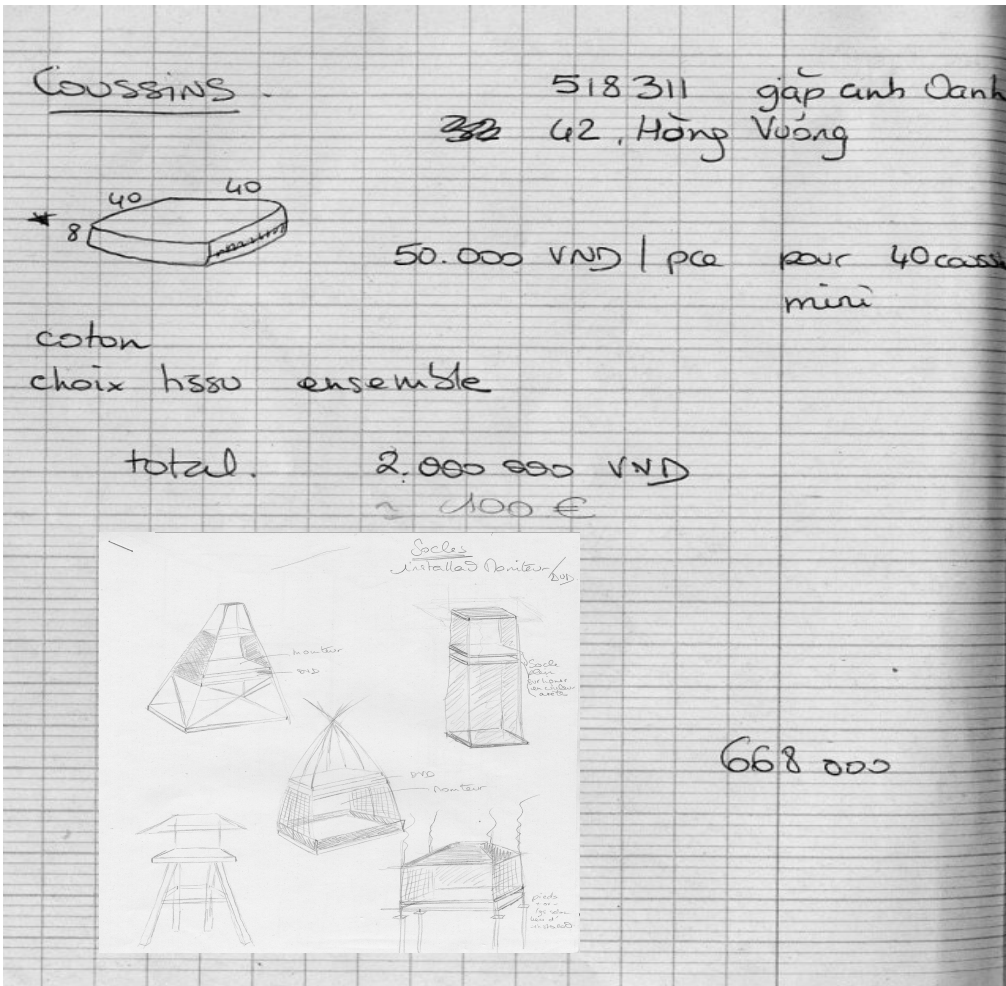 Coussins.
518 311 gặp anh Oanh
42, Hồng Vương
40 40
8
50.000 VND / pce pour 40 couss
mini
coton
choix tissu ensemble
total. 2.000 000 VND
~ 100 €
Socles
installa° Moniteur/DVD
moniteur
DVD
Socle
DVD
moniteur
pieds
668 000